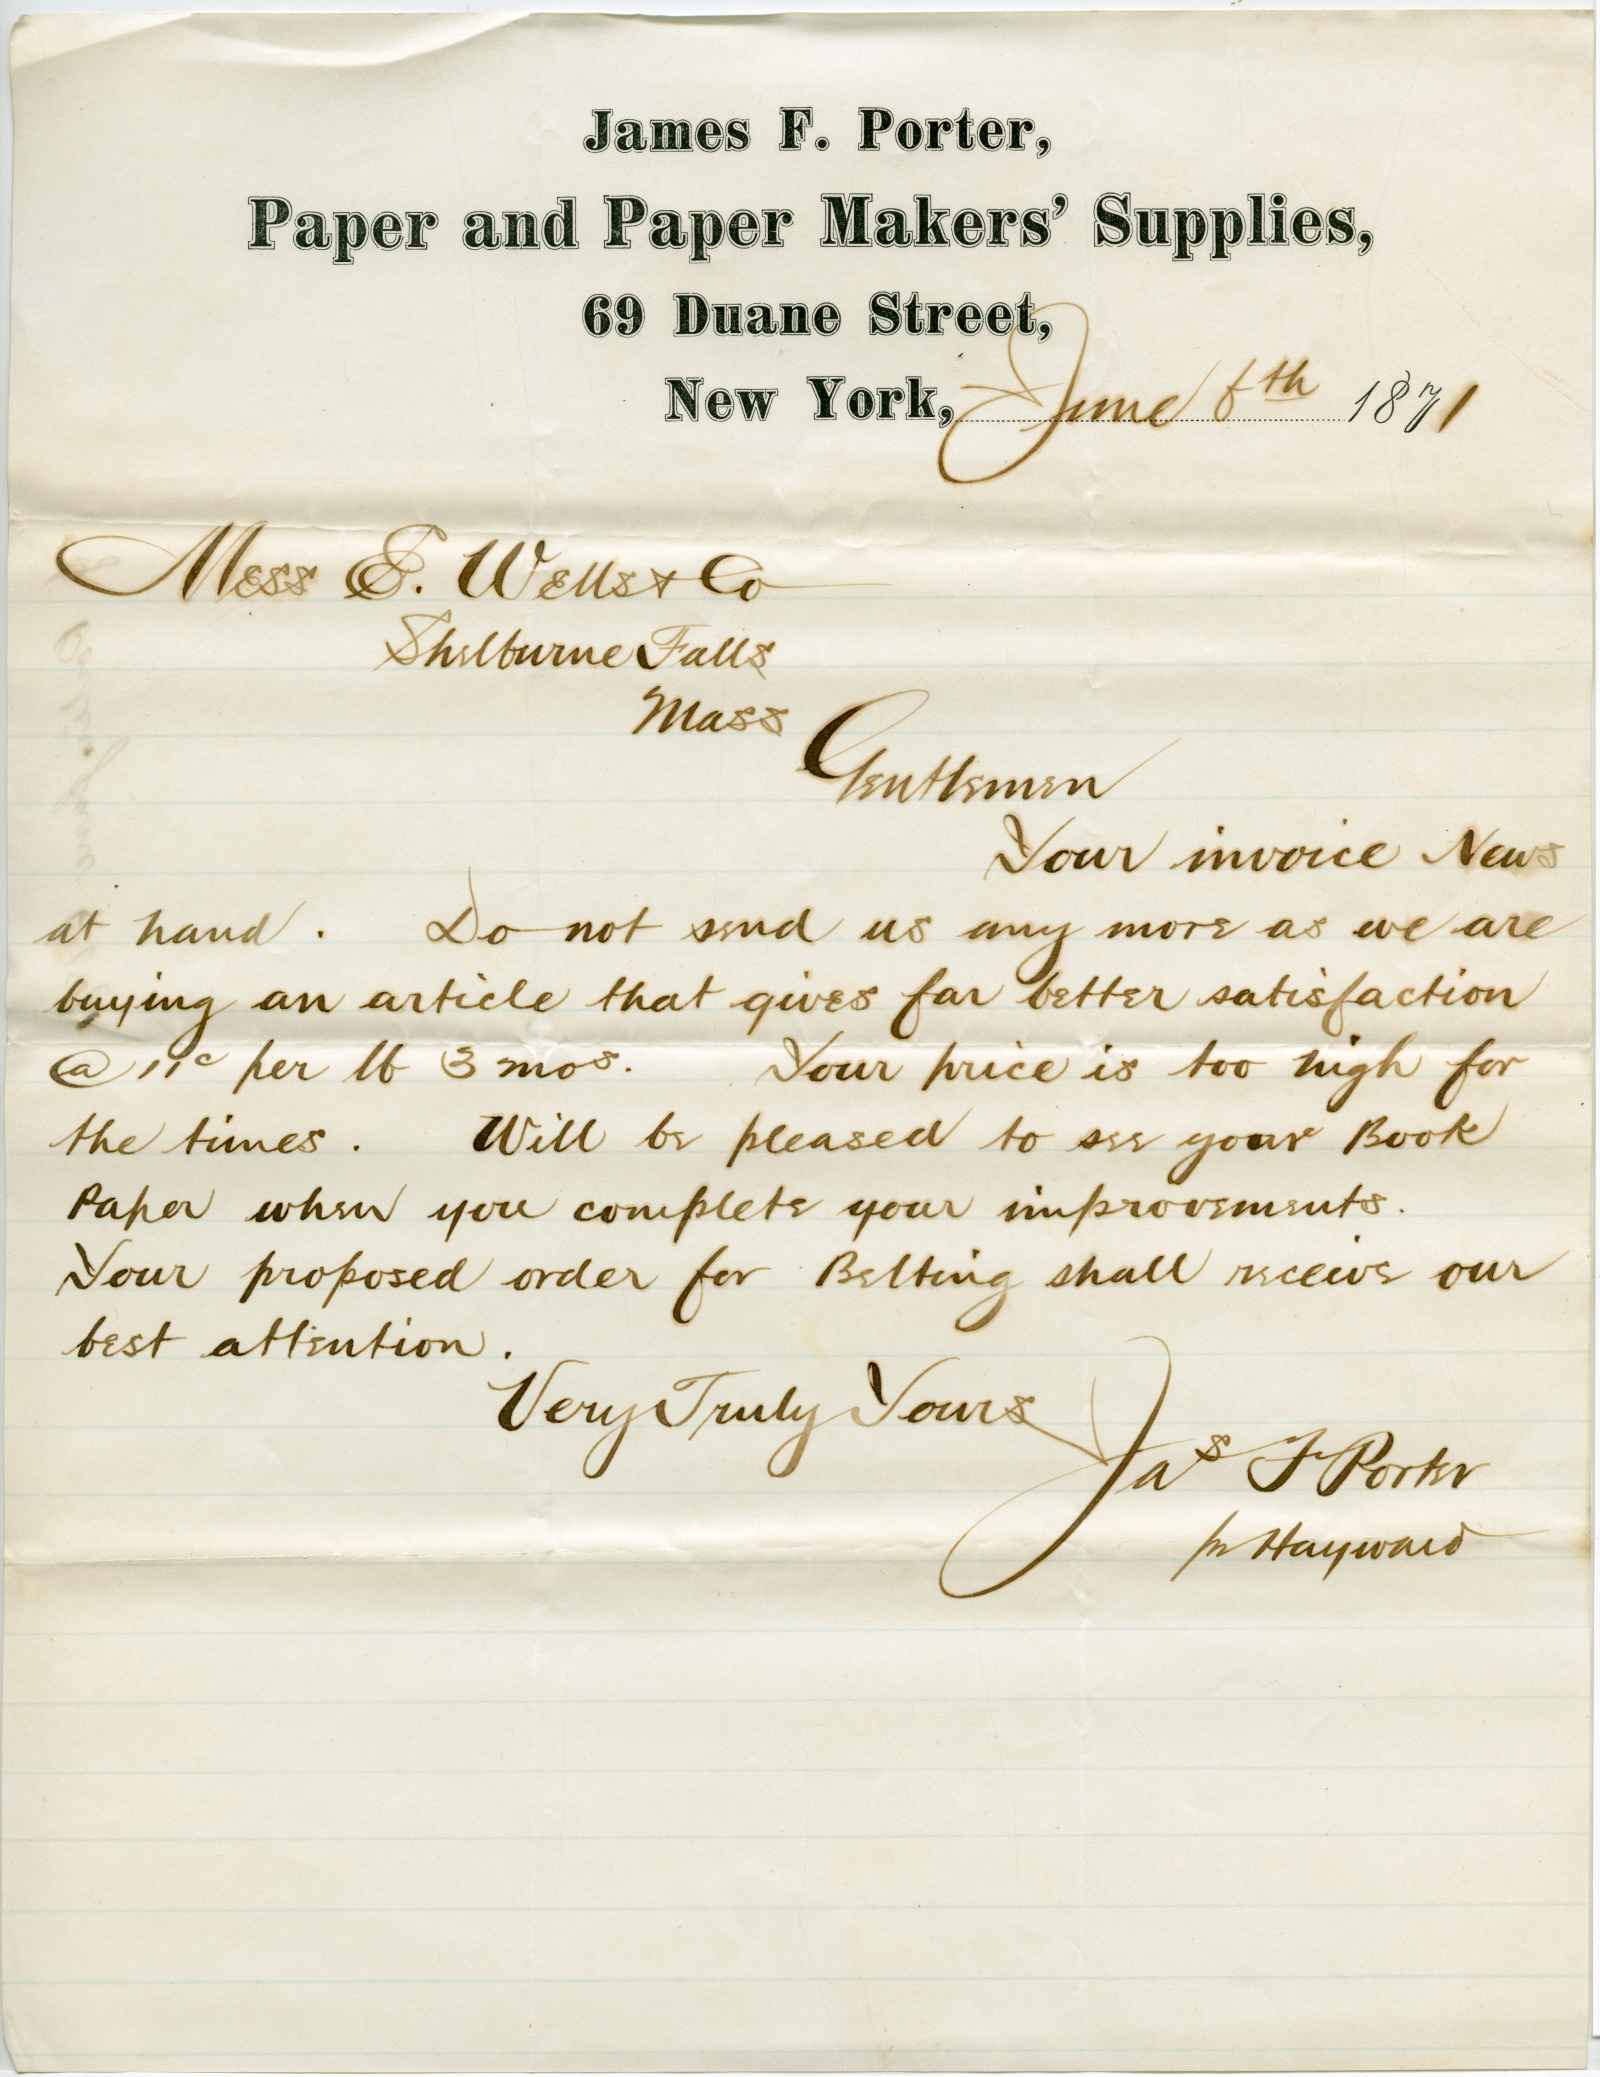 James F. Porter,
Paper and Paper Makers' Supplies,
69 Duane Street,
New York, June 6th 1871
Mess E. Wells & Co
Shelburne Falls
Mass
Gentlemen
Your invoice News
at hand. Do not send us any more as we are
buying an article that gives far better satisfaction
@ 11c per lb 3 mos. Your price is too high for
the times. Will be pleased to see your Book
Paper when you complete your improvements.
Your proposed order for Belting shall receive our
best attention.
Very Truly Yours
Jas F Porter
pr Hayward